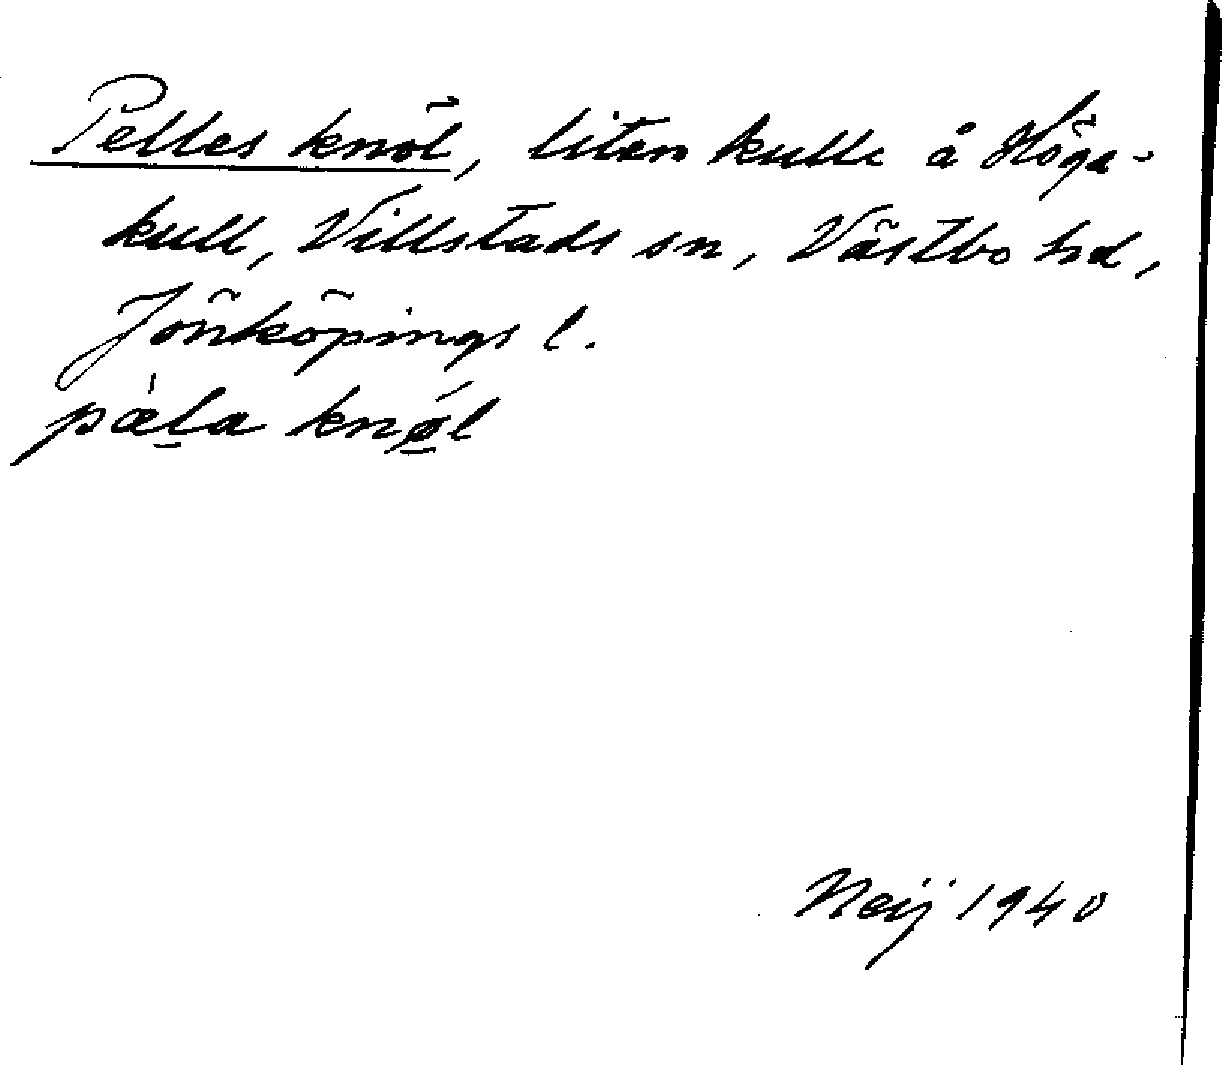 Pelles knöl, liten kulle å Höga-
kull, Villstads sn, Västbo hd,
Jönköpings l.
pæ̀l̠a knǿ̠l
Neij 1940